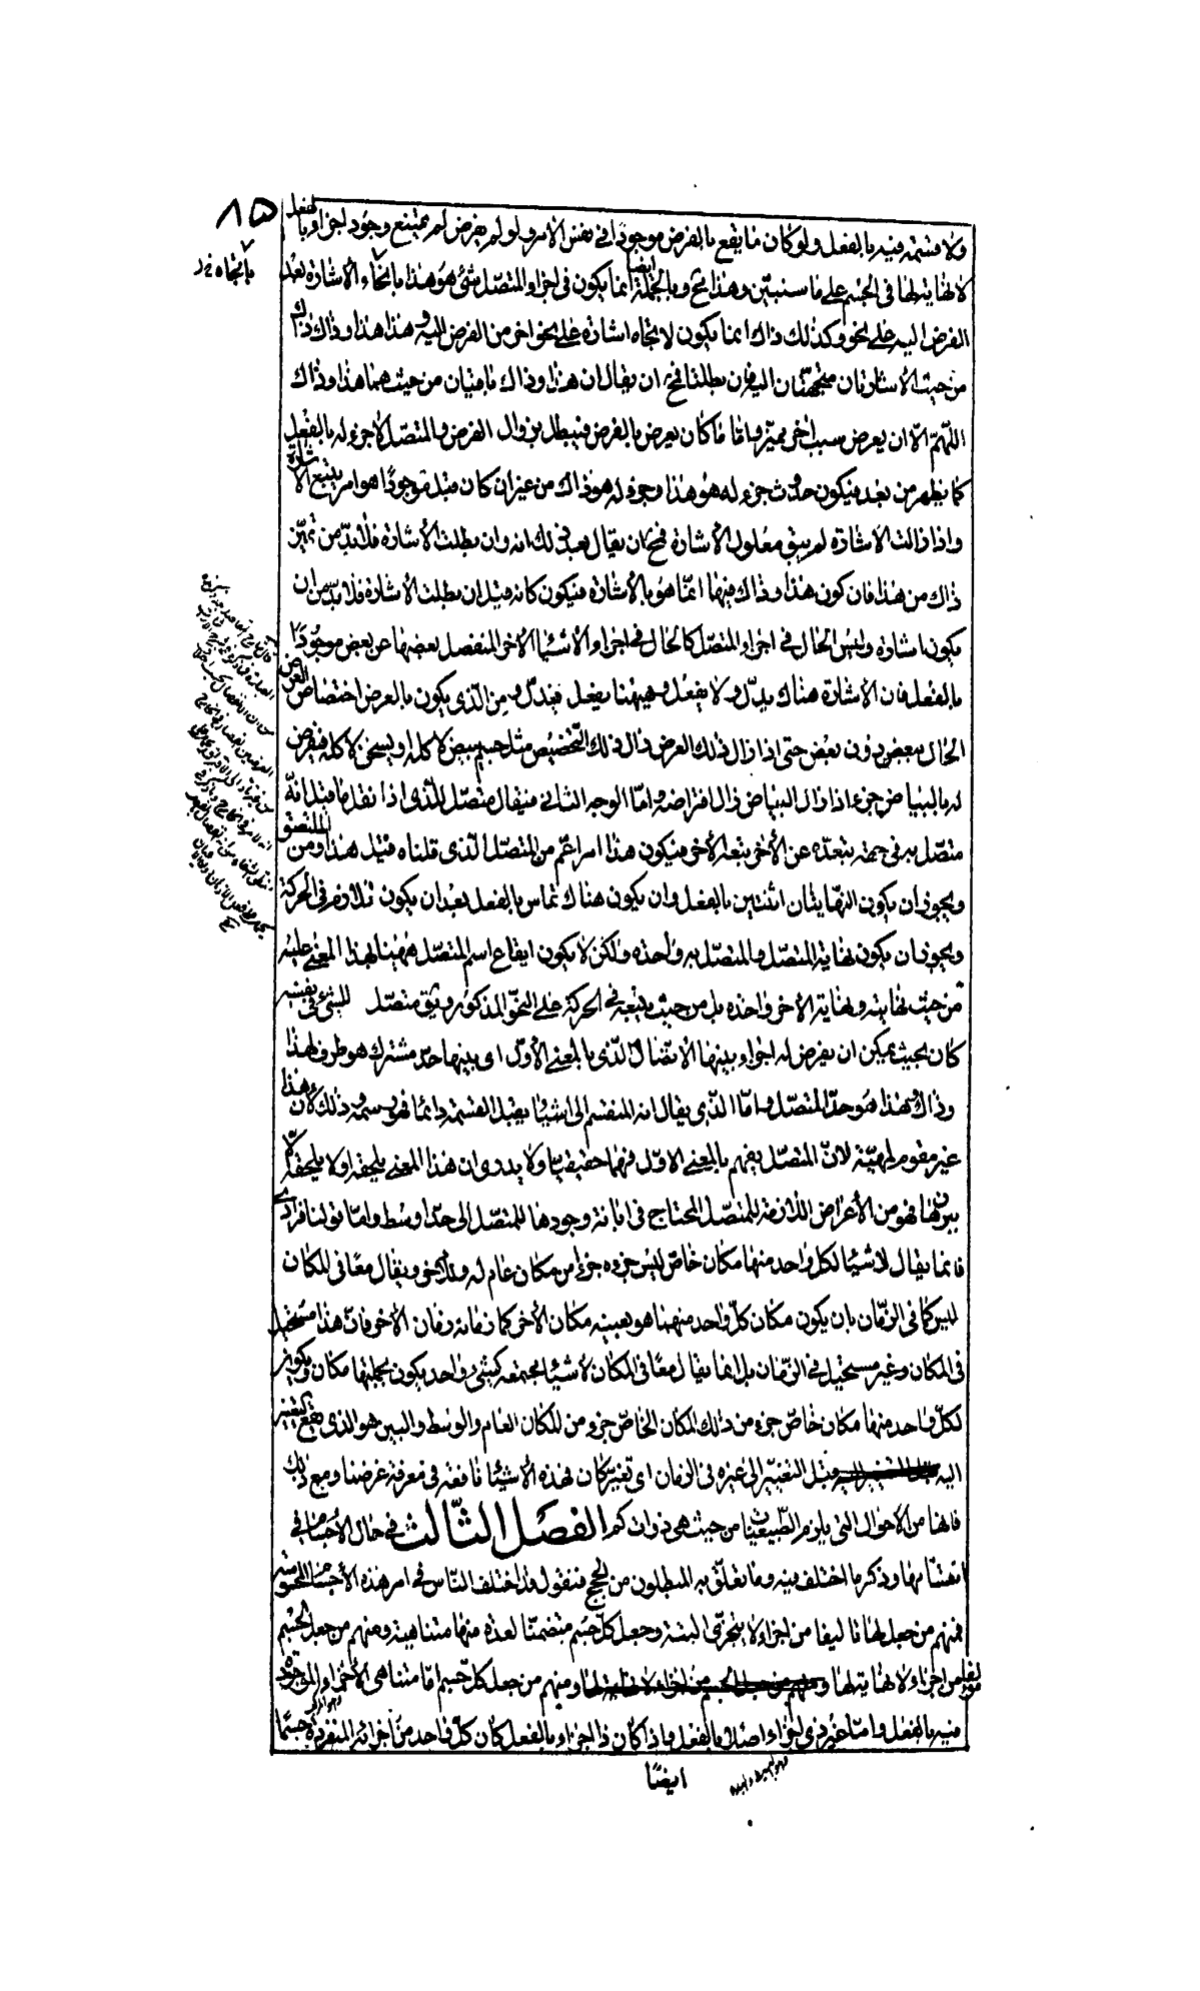 ٨٥
ولا قسمة فيه بالفعل ولو كان ما يقع بالفرض موجودا في نفس الامر ولو لم يفرض لم يمتنع وجود اجزاء بالفعل
لا نهاية لها في الجسم على ما سنبين وهذا مح وبالجملة ايضا انما يكون في اجزاء المتصل شئ هو هذا باتجاه الاشارة بعد
باتجاه خ ر
الفرض اليه على نحو وكذلك ذاك انما يكون لاتجاه اشارة على نحو اخر من الفرض اليه وهذا هذا وذاك ذاك
من حيث الاشارتان متجهتان اليه فان بطلتا فمح ان يقال ان هذا وذاك باقيان من حيث هما هذا وذاك
اللهم الا ان يعرض سبب اخر مميز واما ما كان يعرض بالفرض فيبطل بزوال الفرض والمتصل لا جزء له بالفعل
كما يظهر من بعد فيكون حدوث جزء له هو هذا وجزء له هو ذاك من غير ان كان قبل موجودا هو امر يتبع الاشارة
واذا زالت الاشارة لم يبق معلول الاشارة فمح ان يقال بعد ذلك انه وان بطلت الاشارة فلا بد من تميز
ذاك من هذا فان كون هذا وذاك فيها انما هو بالاشارة فيكون كانه قيل ان بطلت الاشارة فلا بد من ان
يكون اشارة وليس الحال في اجزاء المتصل كالحال في اجزاء الاشياء الاخر المنفصل بعضها عن بعض موجودا
بالفعل فان الاشارة هناك يدل ولا يفعل وههنا يفعل فيدل ومن الذي يكون بالعرض اختصاص العرض
الحال ببعض دون بعض حتى اذا زال ذلك العرض زال ذلك التخصيص مثل جسم يبيض لا كله او يسخن لا كله فيفرض
له بالبياض جزء اذا زال البياض زال افتراضه واما الوجه الثاني فيقال متصل للذى اذا نقل ما قيل انه
متصل به في جهة يتعده عن الاخر تبعه الاخر فيكون هذا امرا اعم من المتصل الذى قلناه قبل هذا ومن الملتصق
ويجوز ان يكون النهايتان اثنتين بالفعل وان يكون هناك تماس بالفعل بعد ان يكون تلازم في الحركة
ويجوز ان يكون نهاية المتصل والمتصل به واحدة ولكن لا يكون ايقاع اسم المتصل ههنا لهذا المعنى عليه
من حيث نهايته ونهاية الاخر واحدة بل من حيث يتبعه في الحركة على النحو المذكور ويق متصل للشئ في نفسه
كان بحيث يمكن ان يفرض له اجزاء بينها الاتصال الذى بالمعنى الاول اى بينها حد مشترك هو طرف لهذا
وذاك وهذا هو حد المتصل واما الذي يقال انه المنقسم الى اشياء يقبل القسمة دائما فهو رسمه وذلك لان هذا
غير مقوم لمهيته لان المتصل يفهم بالمعنى الاول فهما حقيقيا ولا يدرى ان هذا المعنى يلحقه او لا يلحقه الا
ببرهان فهو من الاعراض اللازمة للمتصل المحتاج في ابانة وجودها للمتصل الى حد اوسط واما قولنا فرادى
فانما يقال لاشياء لكل واحد منها مكان خاص ليس جزؤه جزءا من مكان عام له وللآخر ويقال معا فى المكان
ليس كما فى الزمان بان يكون مكان كل واحد منهما هو بعينه مكان الاخر كما زمانه زمان الاخر فان هذا مستحيل
فى المكان وغير مستحيل في الزمان بل انما يقال معا فى المكان لاشياء مجتمعة كشئ واحد يكون بجملتها مكان ويكون
لكل واحد منها مكان خاص جزء من ذلك المكان الخاص جزء من المكان العام والوسط والبين هو الذى يقع التغير
اليه قبل التغير الى غيره فى الزمان اى تغير كان فهذه الاشياء نافعة فى معرفة غرضنا ومع ذلك
فانها من الاحوال التى يلزم الطبيعيات من حيث هى ذوات كم الفصل الثالث في حال الاجسام في
انقسامها وذكر ما اختلف فيه وما تعلق به المبطلون من الحجج فنقول قد اختلف الناس في امر هذه الاجسام المحسوسة
فمنهم من جعل لها تاليفا من اجزاء لا يتجزى البتة وجعل كل جسم متضمنا لعدة منها متناهية ومنهم من جعل الجسم
مؤلفا من اجزاء لا نهاية لها ومنهم من جعل كل جسم اما متناهى الاجزاء الموجودة
فيه بالفعل واما غير ذى اجزاء اصلا بالفعل واذا كان ذا اجزاء بالفعل كان كل واحد من اجزائه المنفردة جسما
ايضا